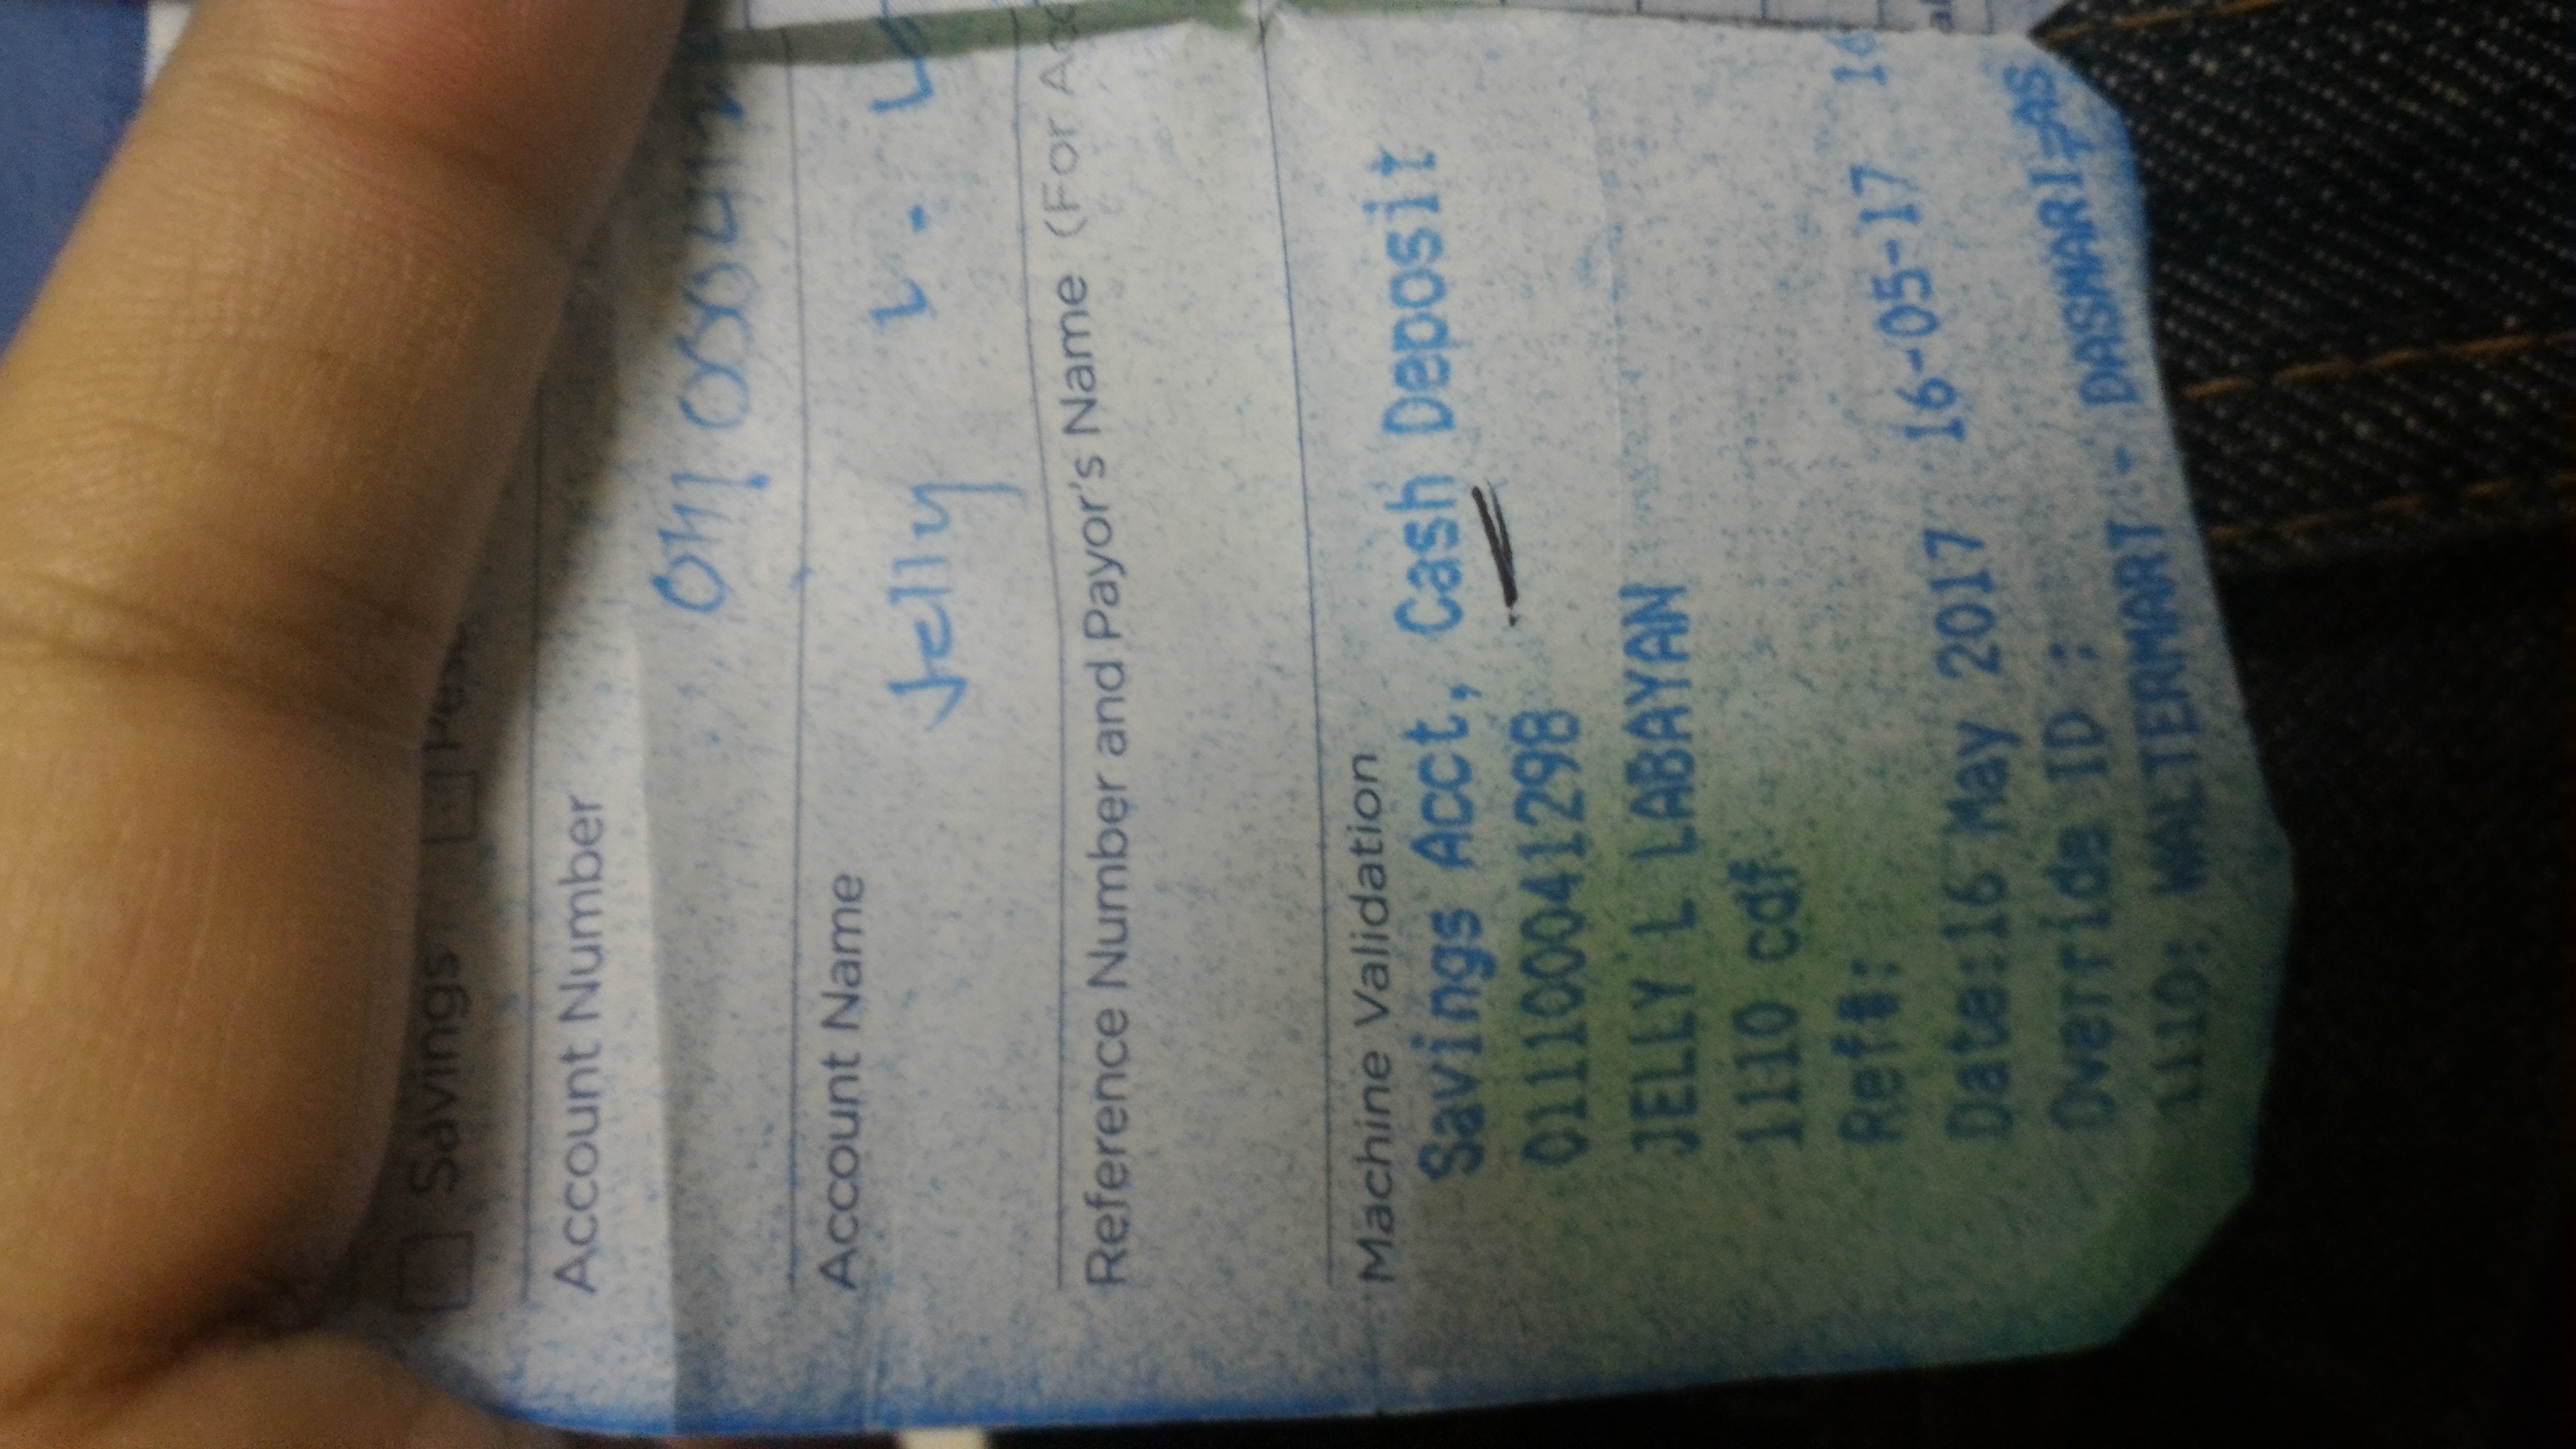 Savings
Account Number
0111000412
Account Name
Jelly L. L
Reference Number and Payor's Name (For Acc
Machine Validation
Savings Acct, Cash Deposit
011100041298
JELLY L LABAYAN
1110 cdf
Ref#:
Date:16 May 2017 16-05-17 16
Override ID :
1110: WALTERMART - DASMARI-AS